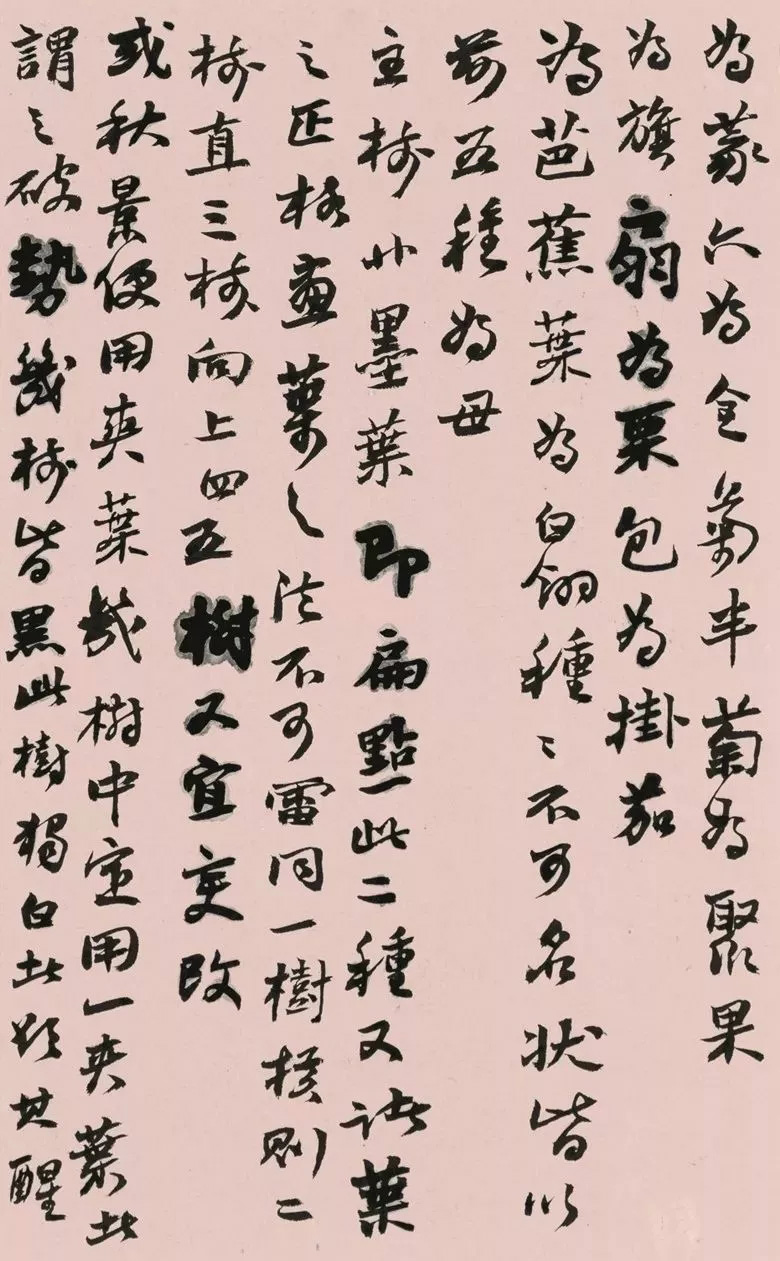 為篆六為全菊半菊為聚果
為旗扇為栗包為掛茄
為芭蕉葉為白翎種々不可名狀皆以
前五種為母
主樹小墨葉即扁點一此二種又諸葉
之正格畫葉之法不可雷同一樹横則二
樹直三樹向上四五樹又宜变改
或秋景便用夾葉幾樹中定用一夾葉此
謂之破勢幾樹皆黑此樹獨白此所其醒